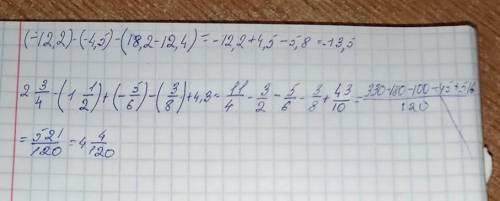 (-12,2)-(-4,5)-(18,2-12,4)=-12,2+4,5-5,8=-13,5
2 3/4-(1 1/2)+(-5/6)-(3/8)+4,3=11/4-3/2-5/6-3/8+43/10=330-180-100-45+516/120
=521/120=4 4/120